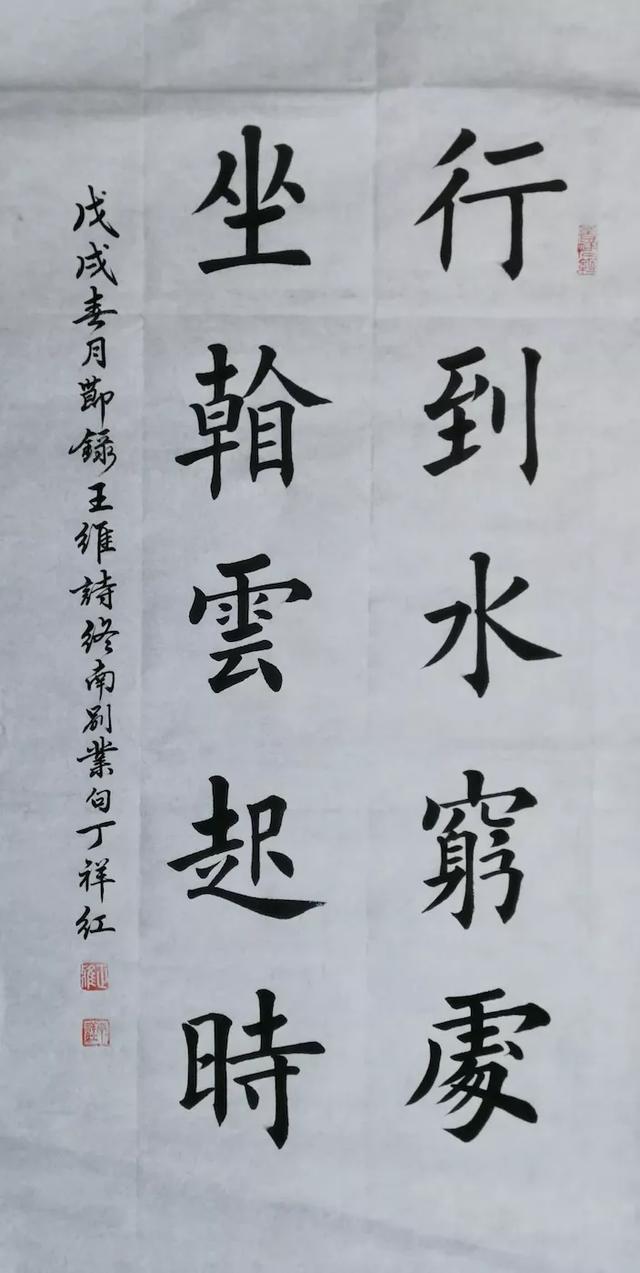 行到水窮處
坐看雲起時
戊戌春月節錄王維詩終南別業句丁祥紅